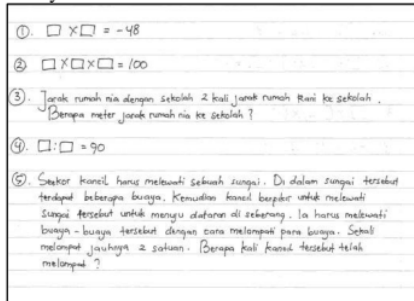 ①. □ × □ = -48
② □ × □ × □ = 100
③. Jarak rumah nia dengan sekolah 2 kali jarak rumah Rani ke sekolah.
Berapa meter jarak rumah nia ke sekolah ?
④. □ : □ = 90
⑤. Seekor kancil harus melewati sebuah sungai. Di dalam sungai tersebut
terdapat beberapa buaya. Kemudian kancil berpikir untuk melewati
sungai tersebut untuk menuju dataran di seberang. Ia harus melewati
buaya - buaya tersebut dengan cara melompati para buaya. Sekali
melompat jauhnya 2 satuan. Berapa kali kancil tersebut telah
melompat ?